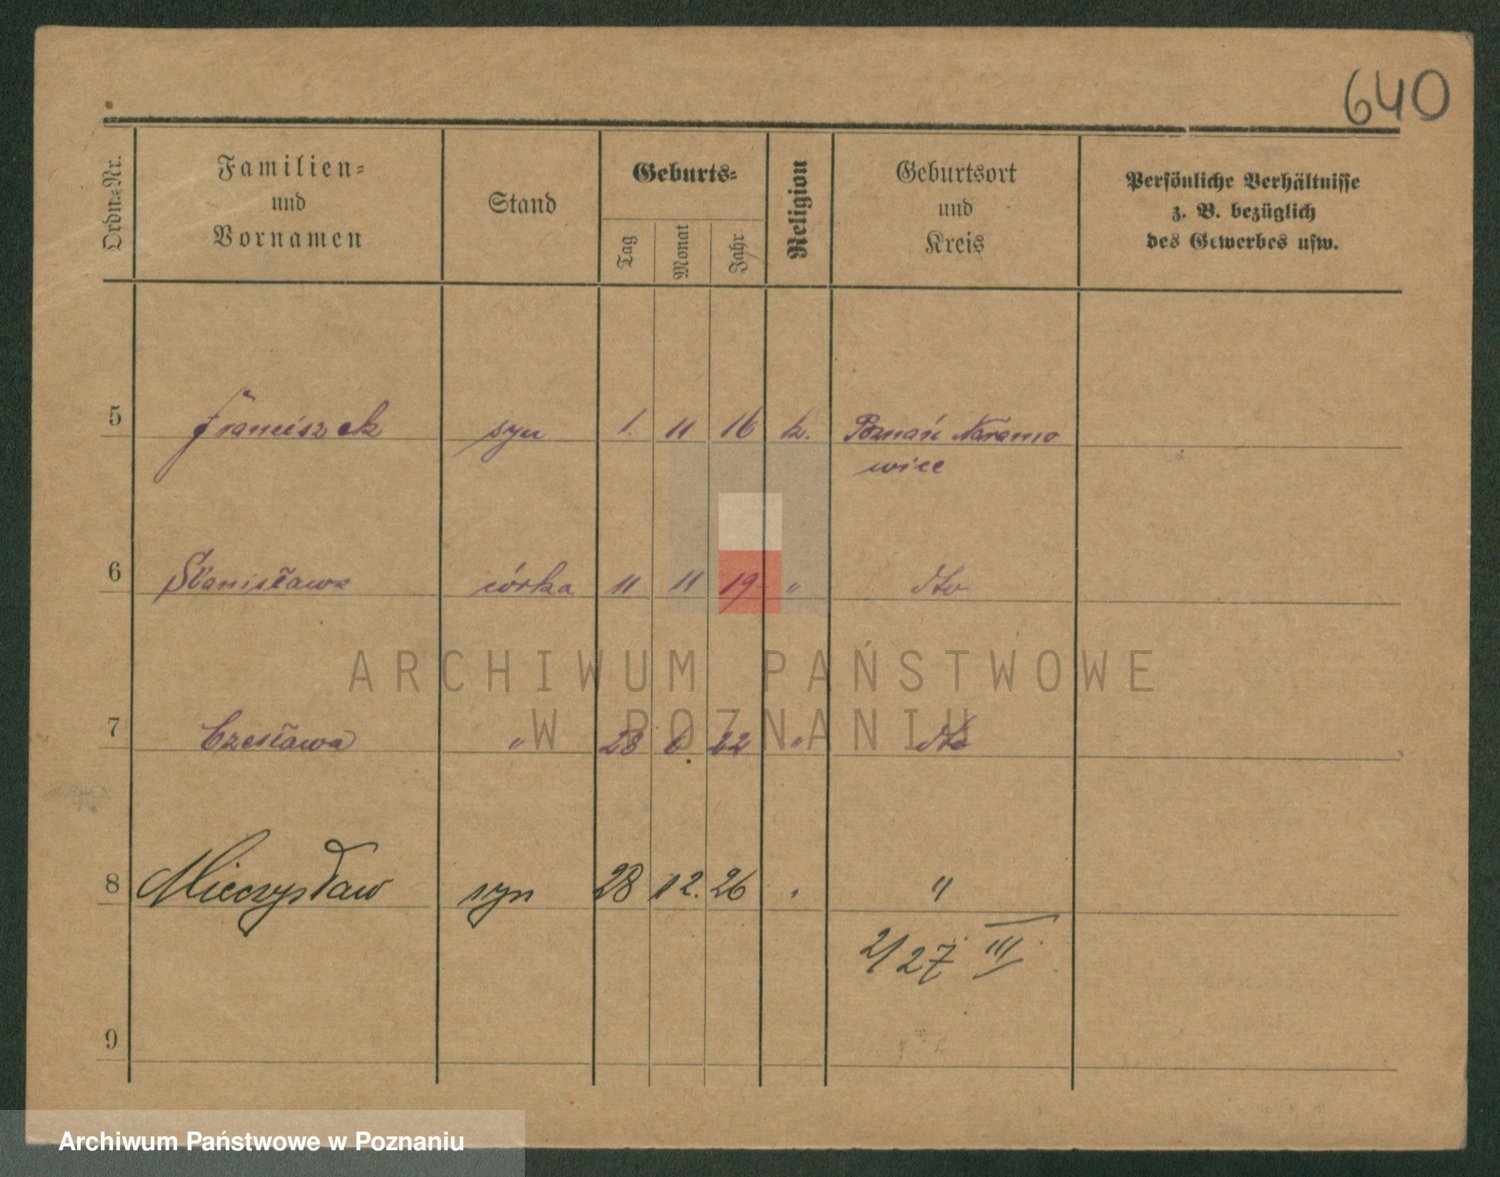 640
Ordn.-Nr.
Familien-
und
Vornamen
Stand
Geburts-
Tag
Monat
Jahr
Religion
Geburtsort
und
Kreis
Persönliche Verhältnisse
z. B. bezüglich
des Gewerbes usw.
5 Franciszek syn 1. 11 16 k. Poznań Naramo
wice
6 Stanisława córka 11 11 19 " dto
ARCHIWUM PAŃSTWOWE
W POZNANIU
7 Czesława " 28 6. 22 " dto
8 Mieczysław syn 28 12. 26 " "
2/27 III
9
Archiwum Państwowe w Poznaniu